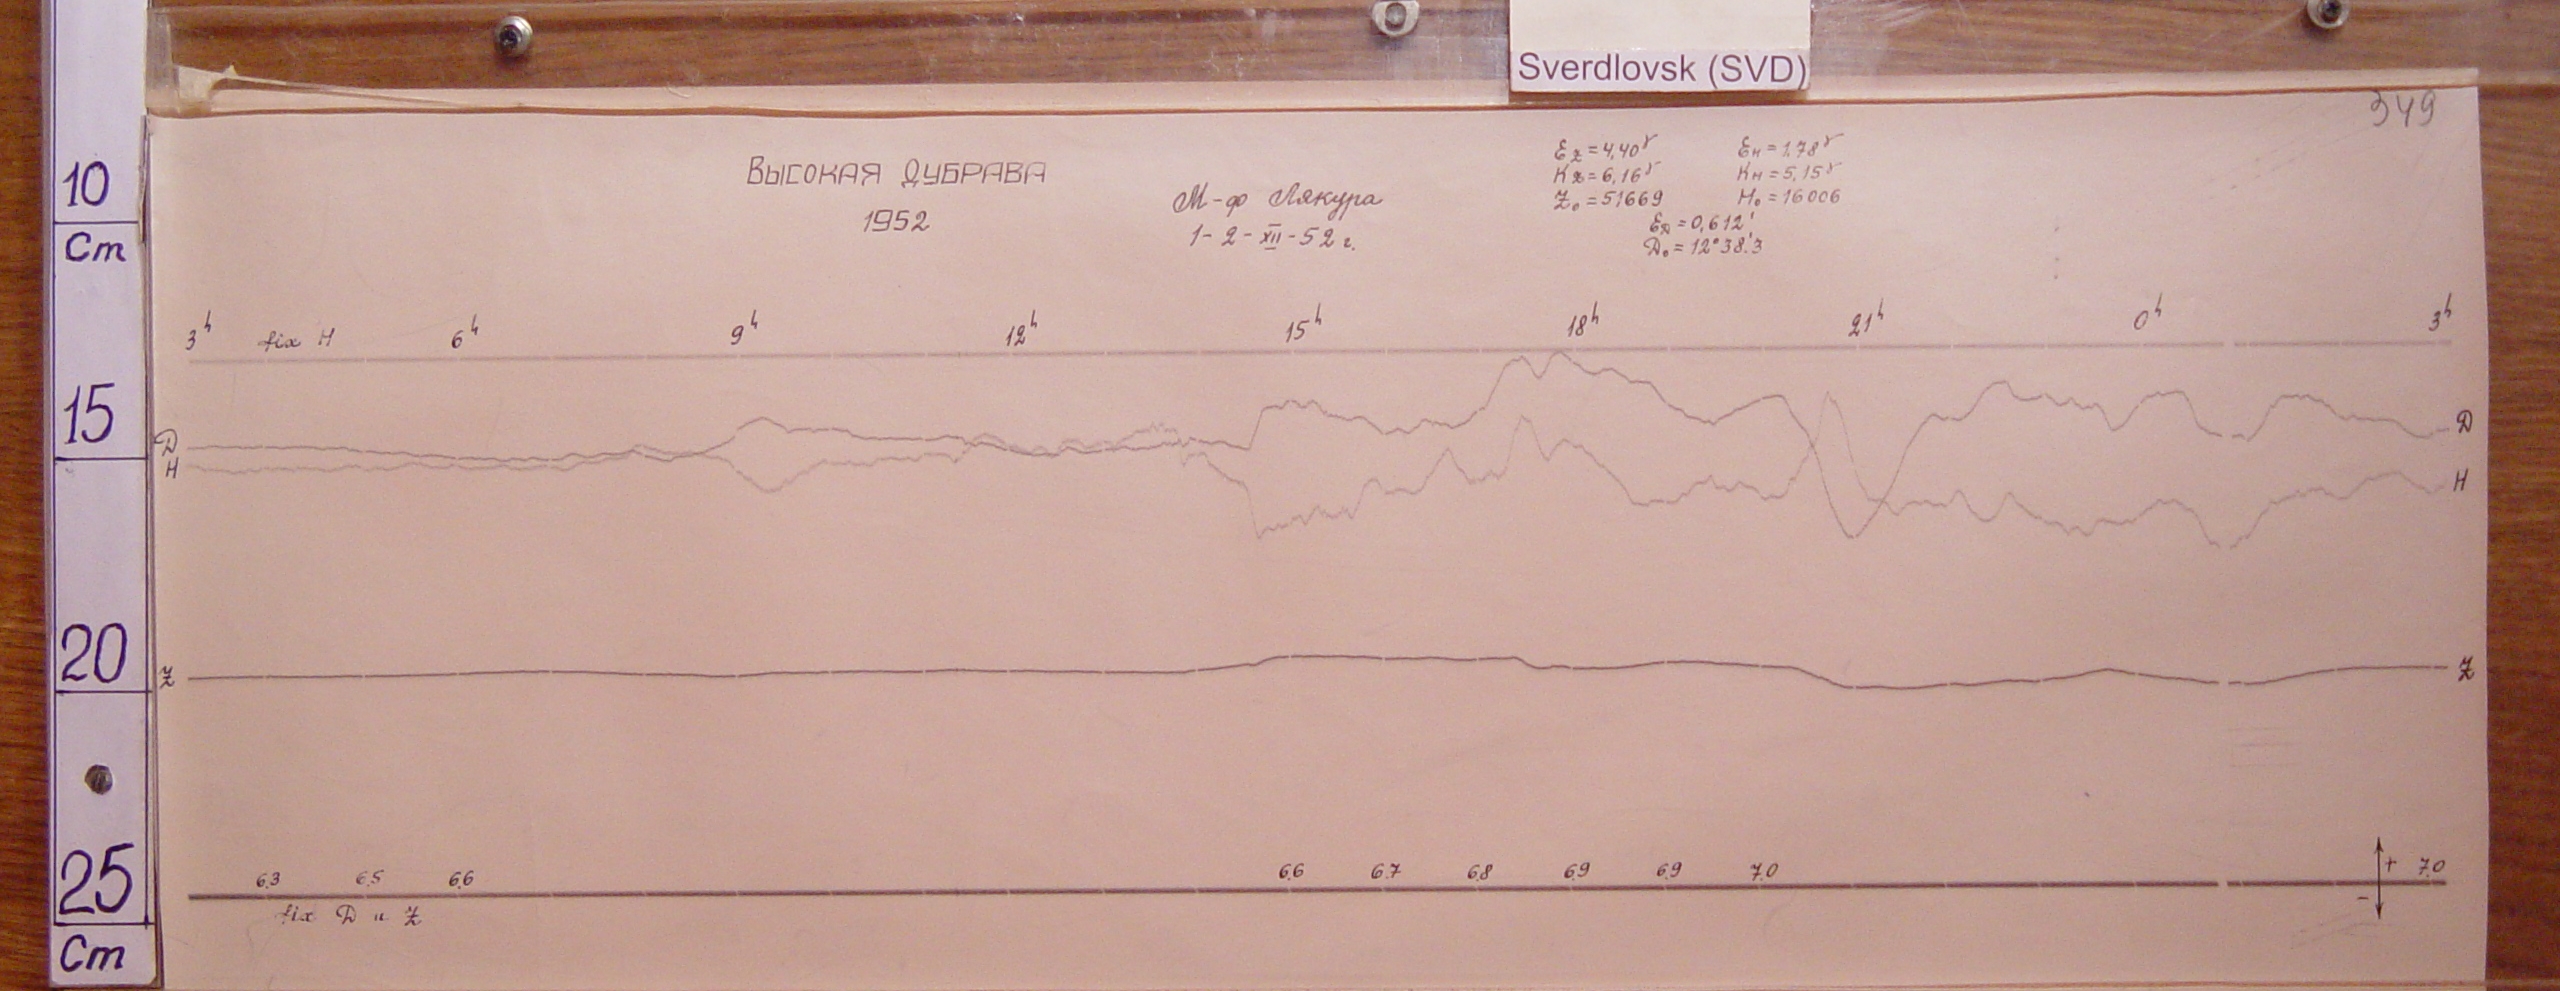 Sverdlovsk (SVD)
349
ВЫСОКАЯ ДУБРАВА
1952
М-ф Лякура
1-2-XII-52 г.
Ez = 4,40γ Eн = 1,78γ
Kz = 6,16γ Kн = 5,15γ
Z₀ = 51669 H₀ = 16006
ED = 0,612'
D₀ = 12°38'.3
10
Cm
15
20
25
Cm
3h fix H 6h 9h 12h 15h 18h 21h 0h 3h
D D
H H
Z Z
6.3 6.5 6.6 6.6 6.7 6.8 6.9 6.9 7.0 + 7.0
−
fix D и Z